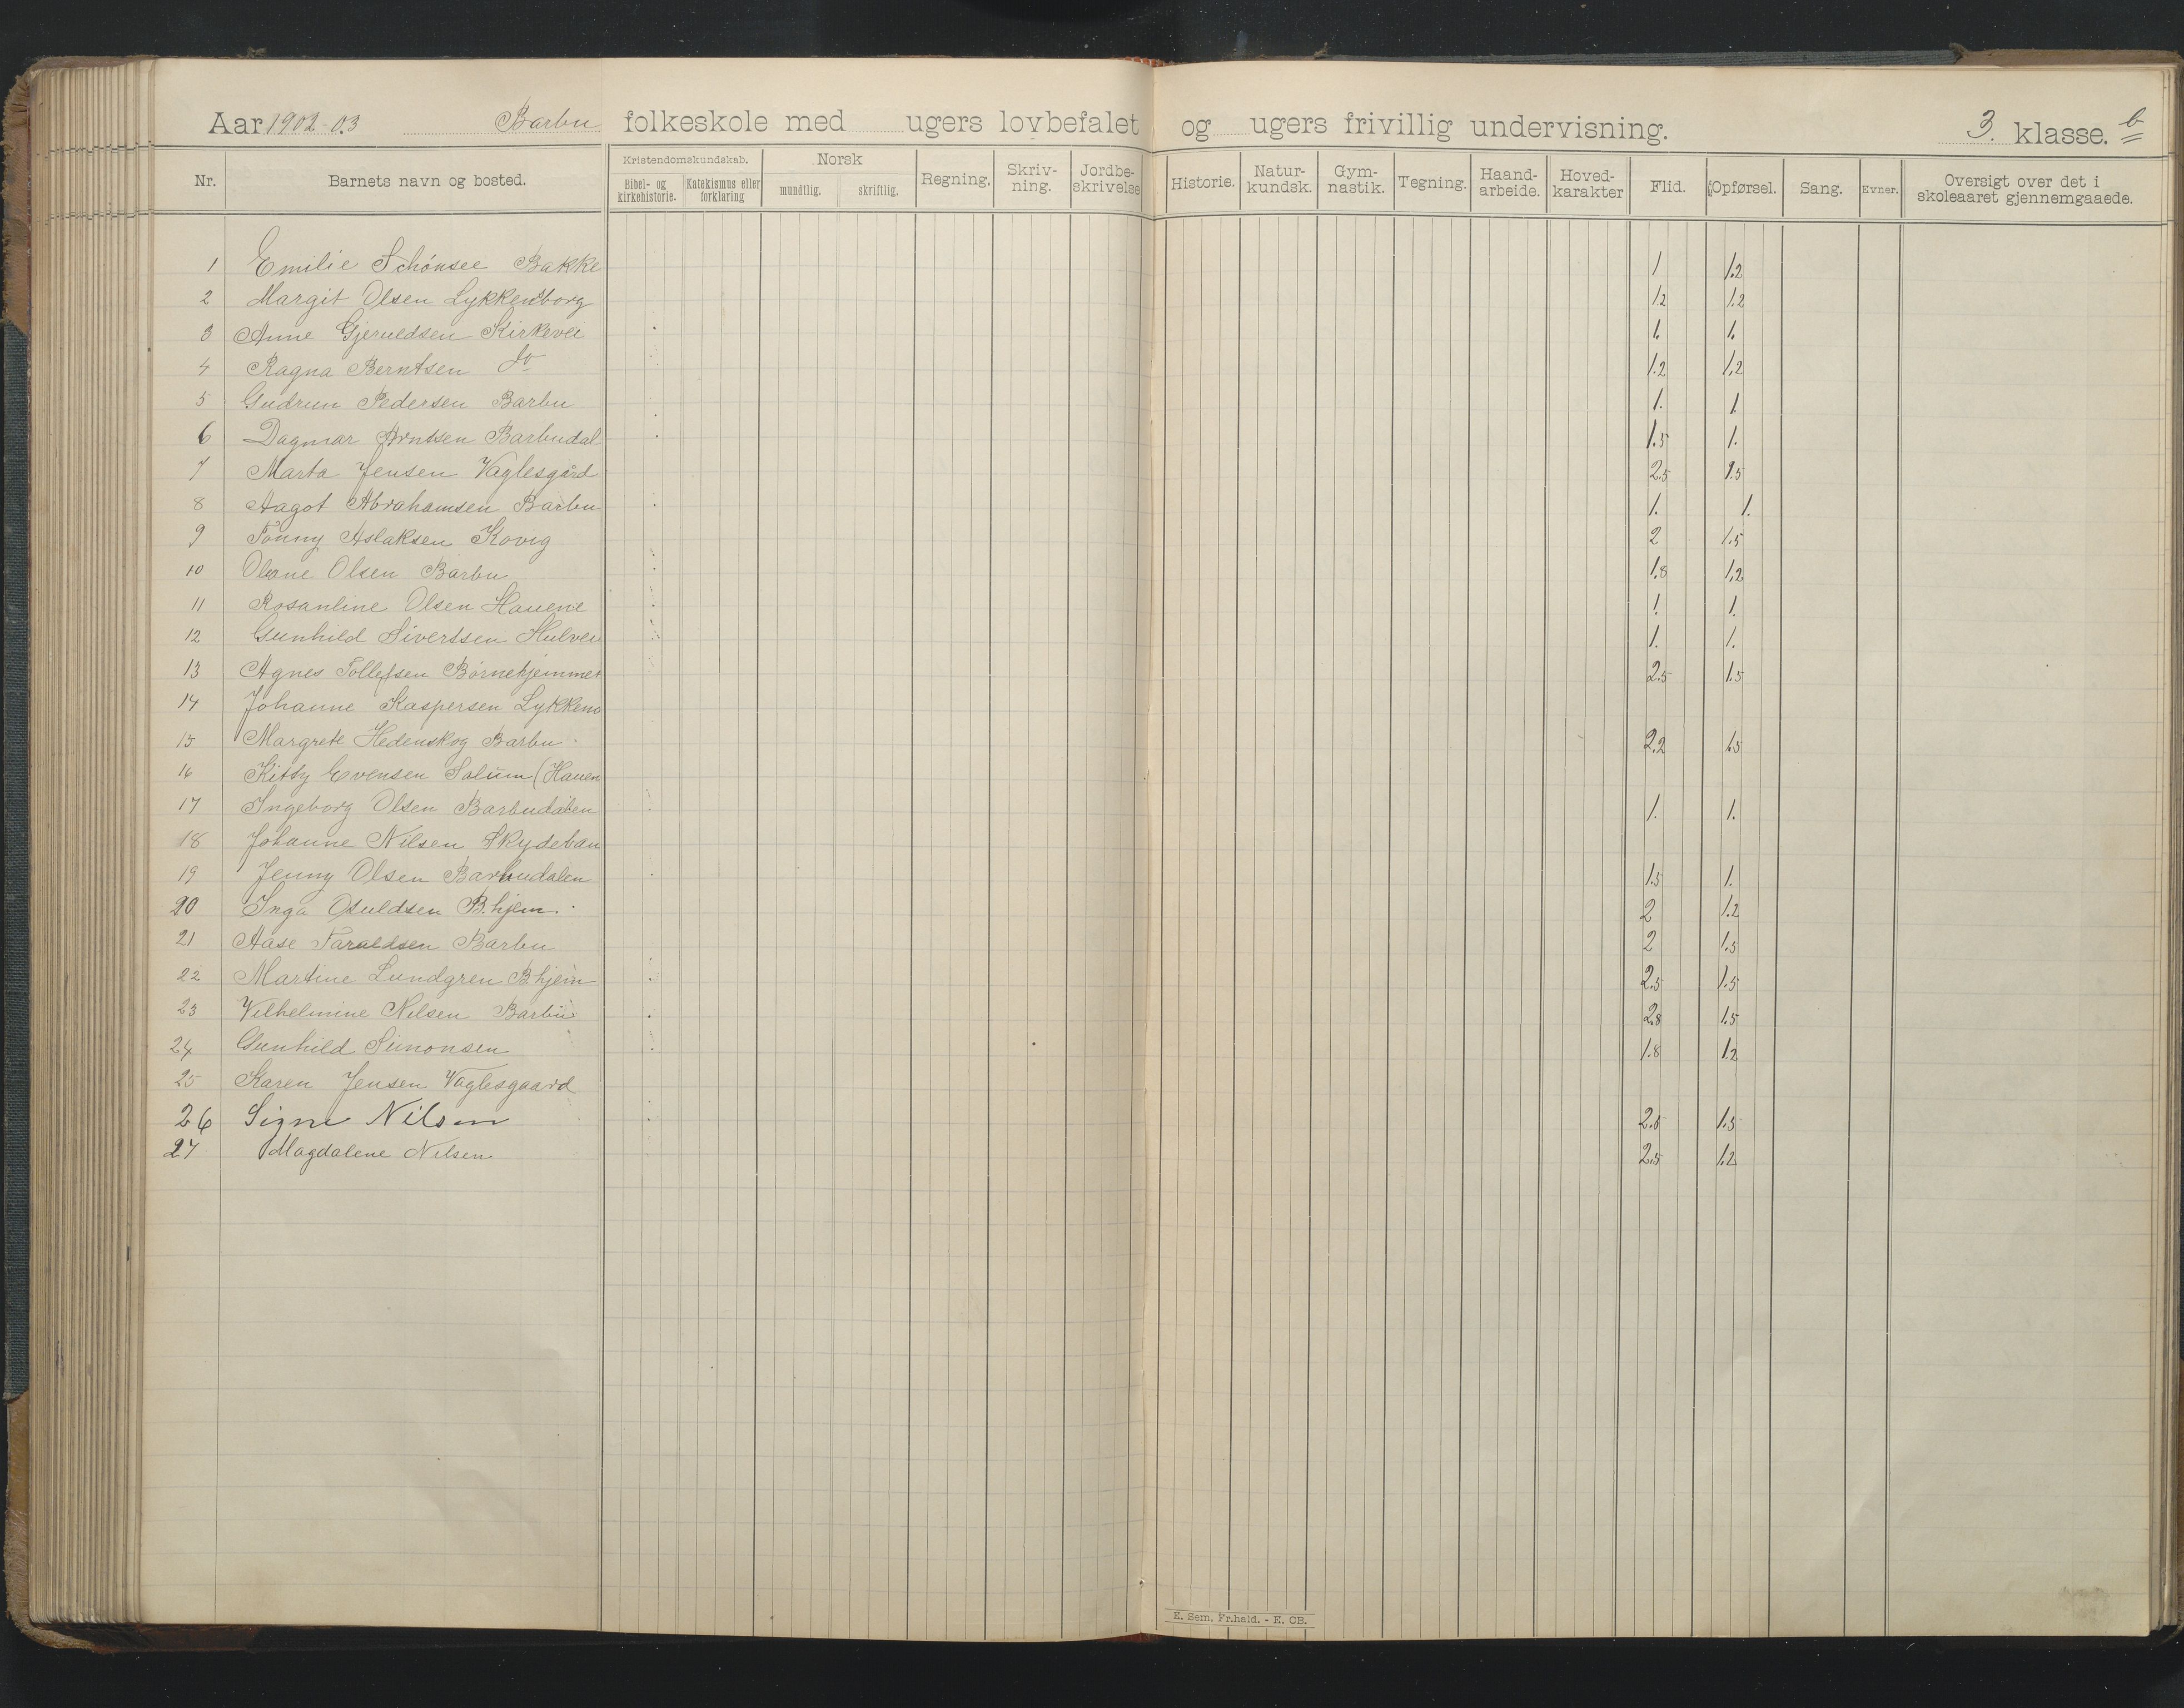 Aar 1902-03 Barbu folkeskole med ugers lovbefalet og ugers frivillig undervisning. 3. klasse. b
Nr. Barnets navn og bosted. Kristendomskundskab. Bibel- og kirkehistorie. Katekismus eller forklaring Norsk mundtlig. skriftlig. Regning. Skriv-ning. Jordbe-skrivelse Historie. Natur-kundsk. Gym-nastik. Tegning. Haand-arbeide. Hoved-karakter Flid. Opførsel. Sang. Evner. Oversigt over det i skoleaaret gjennemgaaede.
1 Emilie Schönsee Bakke 1 1.2
2 Margit Olsen Lykkensborg 1.2 1.2
3 Anne Gjeruldsen Kirkevei 1. 1.
4 Ragna Berntsen do 1.2 1.2
5 Gudrun Pedersen Barbu 1. 1.
6 Dagmar Arntsen Barbudal 1.5 1.
7 Marta Jensen Vaglesgård 2.5 1.5
8 Aagot Abrahamsen Barbu 1. 1.
9 Tönny Aslaksen Kovig 2 1.5
10 Oleane Olsen Barbu 1.8 1.2
11 Rosanline Olsen Hauene 1. 1.
12 Gunhild Sivertsen Hulvei 1. 1.
13 Agnes Tollefsen Börnehjemmet 2.5 1.5
14 Johanne Kaspersen Lykkens
15 Margrete Hedenskog Barbu 2.2 1.5
16 Kitty Evensen Solum (Hauen
17 Ingeborg Olsen Barbudalen 1. 1.
18 Johanne Nilsen Skydeban
19 Jenny Olsen Barbudalen 1.5 1.
20 Inga Osuldsen B.hjem. 2 1.2
21 Aase Taraldsen Barbu 2 1.5
22 Martine Lundgren B.hjem 2.5 1.5
23 Vilhelmine Nilsen Barbu 2.8 1.5
24 Gunhild Simonsen 1.8 1.2
25 Karen Jensen Vaglesgaard
26 Signe Nilsen 2.5 1.5
27 Magdalene Nilsen 2.5 1.2
E. Sem, Fr.hald. - E. CB.